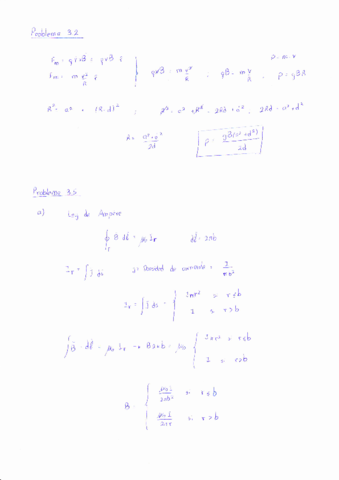 Problema 3.2
p = m v
F_m = q v × B = q v B r̂
F_m = m v²/R r̂
q v B = m v²/R , q B = m v/R , p = q B R
R² = a² + (R-d)² ; R² = a² + R² - 2Rd + d² , 2Rd = a² + d²
R = (a² + d²)/2d
p = qB(a² + d²)/2d
Problema 3.5
a) Ley de Ampere
∮_Γ B dl = μ₀ I_Γ
I_Γ = ∫ J ds J = Densidad de corriente = I/πb²
I_Γ = ∫ J ds = {
I si r > b
∫ B · dl = μ₀ I_Γ → B 2πb = μ₀ {
I si r > b
B = {
si r < b
μ₀I/2πr si r > b